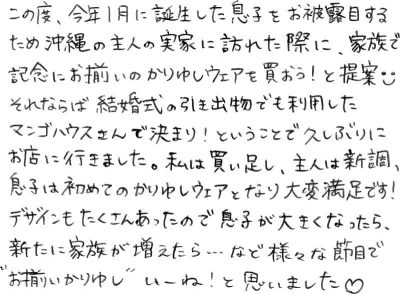 この度、今年1月に誕生した息子をお被露目する
ため沖縄の主人の実家に訪れた際に、家族で
記念にお揃いのかりゆしウェアを買おう！と提案
それならば結婚式の引き出物でも利用した
マンゴハウスさんで決まり！ということで久しぶりに
お店に行きました。私は買い足し、主人は新調、
息子は初めてのかりゆしウェアとなり大変満足です！
デザインもたくさんあったので息子が大きくなったら、
新たに家族が増えたら…など様々な節目で
"お揃いかりゆし"いーね！と思いました♡